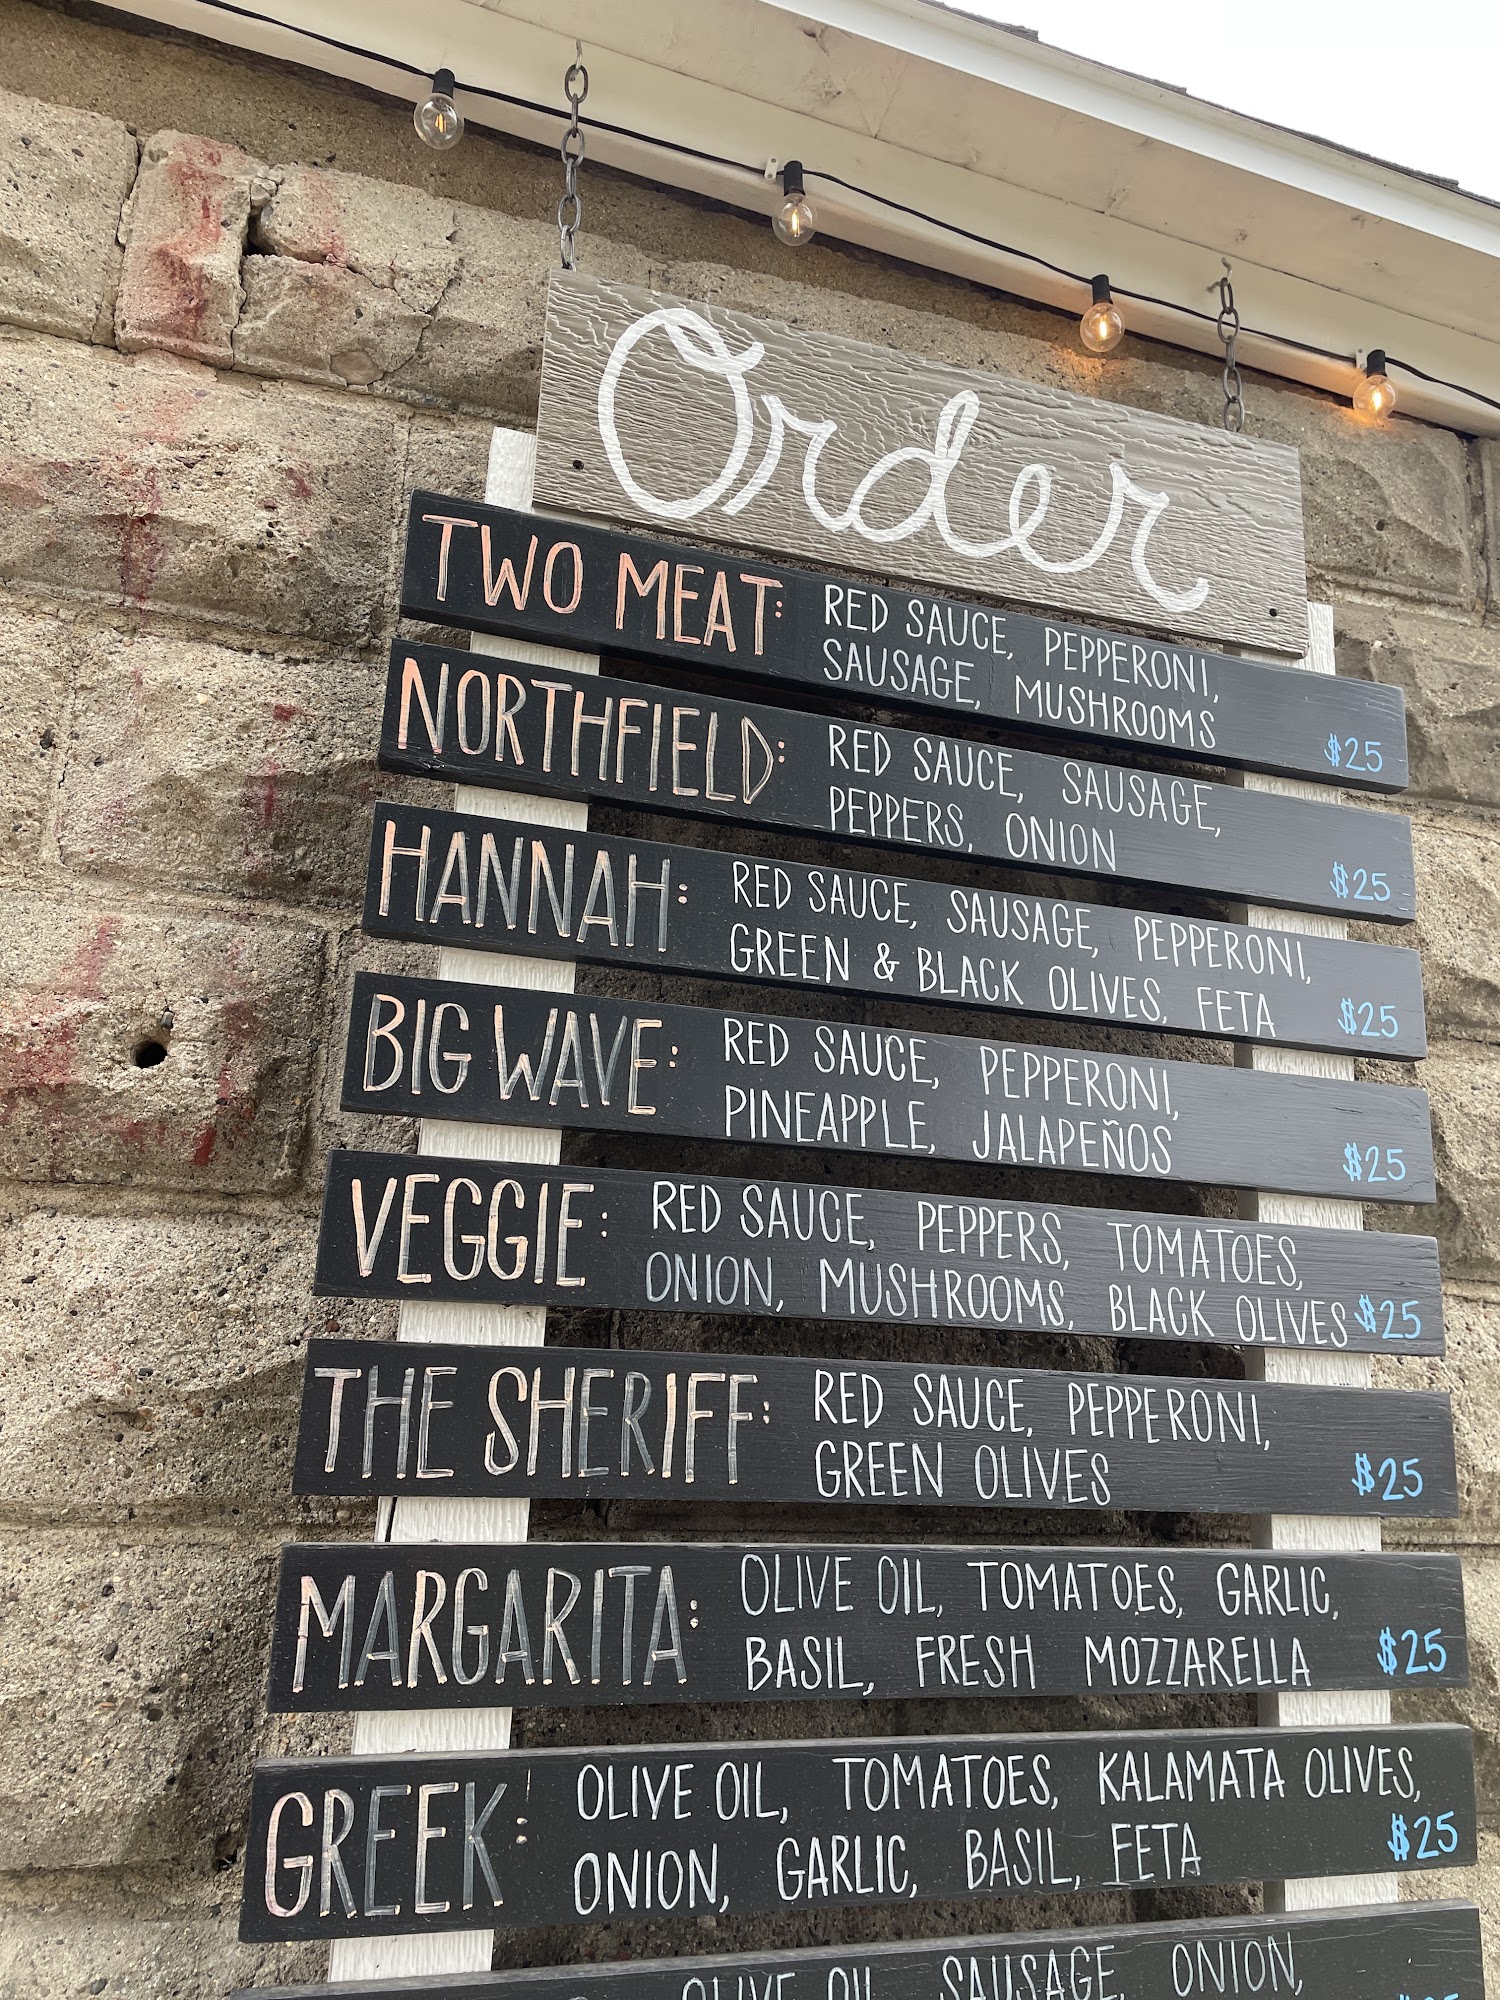 Order
TWO MEAT: RED SAUCE, PEPPERONI,
SAUSAGE, MUSHROOMS $25
NORTHFIELD: RED SAUCE, SAUSAGE,
PEPPERS, ONION $25
HANNAH: RED SAUCE, SAUSAGE, PEPPERONI,
GREEN & BLACK OLIVES, FETA $25
BIG WAVE: RED SAUCE, PEPPERONI,
PINEAPPLE, JALAPEÑOS $25
VEGGIE: RED SAUCE, PEPPERS, TOMATOES,
ONION, MUSHROOMS, BLACK OLIVES $25
THE SHERIFF: RED SAUCE, PEPPERONI,
GREEN OLIVES $25
MARGARITA: OLIVE OIL, TOMATOES, GARLIC,
BASIL, FRESH MOZZARELLA $25
GREEK: OLIVE OIL, TOMATOES, KALAMATA OLIVES,
ONION, GARLIC, BASIL, FETA $25
OLIVE OIL, SAUSAGE, ONION,